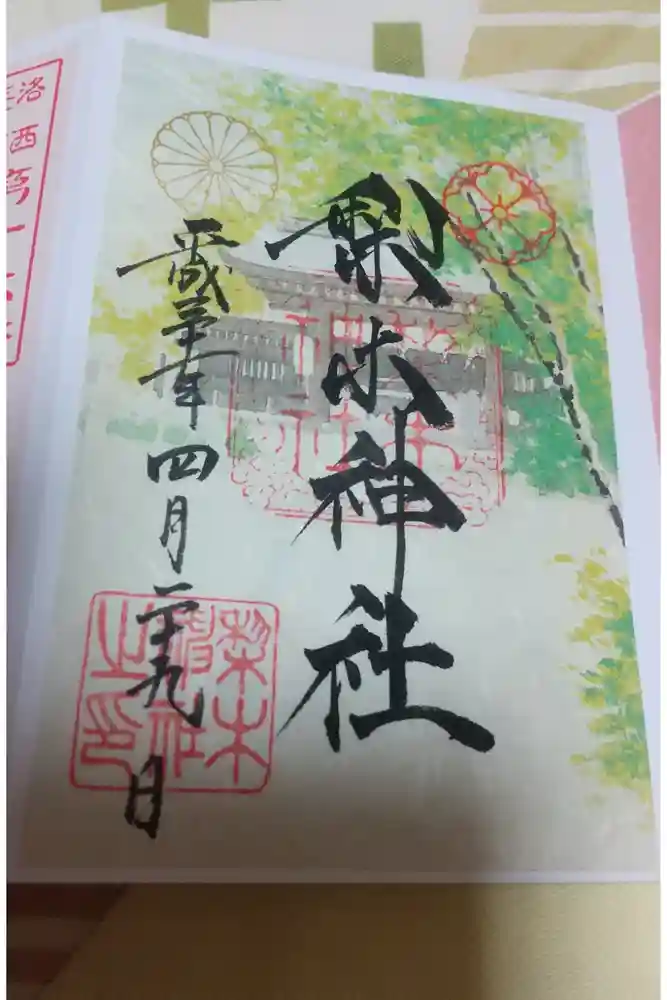 梨木神社
平成三十年四月二十九日
梨木
神社
之印
洛西